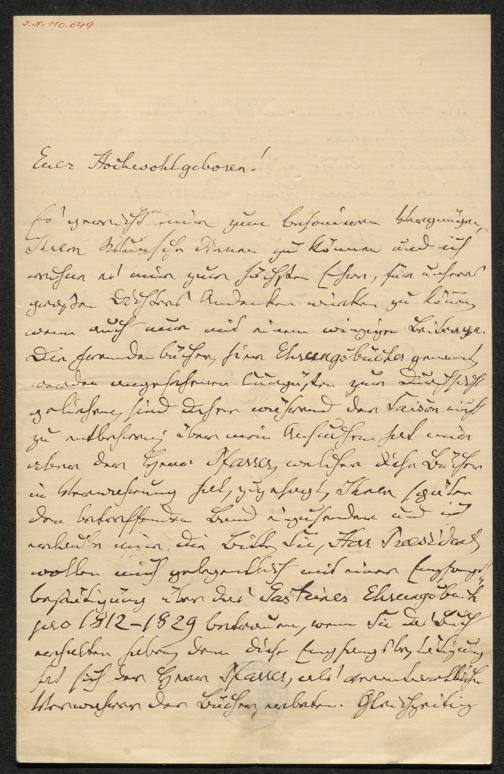 I.N. 110.649
Euer Hochwohlgeboren!
Es gereicht mir zum besonderen Vergnügen,
Ihrem Wunsche dienen zu können und ich
rechne es mir zur höchsten Ehre, für unseres
großen Dichters Andenken wirken zu können
wenn auch nur mit einem winzigen Beitrage.
Die Fremdenbücher, hier Ehrungsbücher genannt,
werden angesehenen Curgästen zur Durchsicht
geliehen, sind daher während der Saison nicht
zu entbehren; über mein Ansuchen hat mir
aber der Herr Pfarrer, welcher diese Bücher
in Verwahrung hat, zugesagt, Ihnen später
den betreffenden Band einzusenden und ich
erlaube mir die Bitte, Sie, Herr Praesident
wollen mich gelegentlich mit einer Empfangs
bestätigung über das "Gasteiner Ehrungsbuch"
pro 1812–1829 betrauen, wenn Sie das Buch
erhalten haben, denn diese Empfangsbestätigung
hat sich der Herr Pfarrer, als verantwortlicher
Verwahrer der Bücher, erbeten. Gleichzeitig